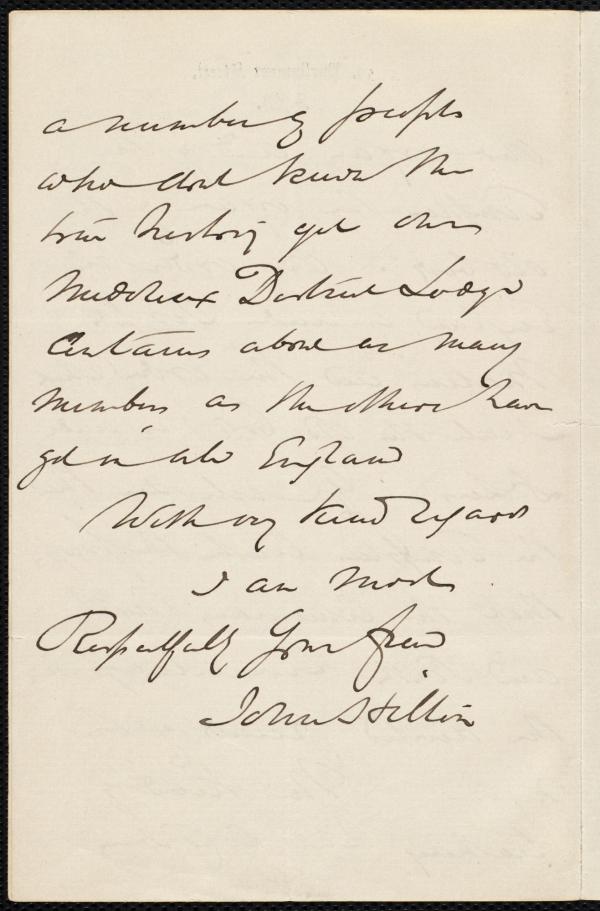 a number of people
who dont know the
true history yet our
Middlesex District Lodge
Contains about as many
members as the others have
got in all England
With my kind regards
I am Most
Respectfully Your friend
John Hilton